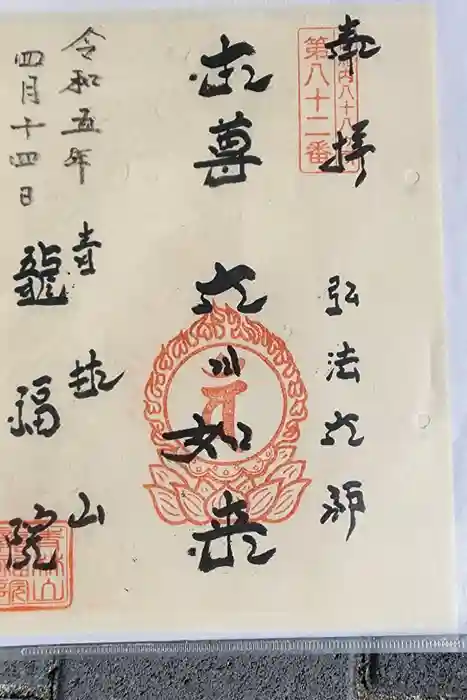 奉拝
内八十八
第八十二番
弘法大師
本尊
大日如来
令和五年
四月十四日
青林山
龍福院